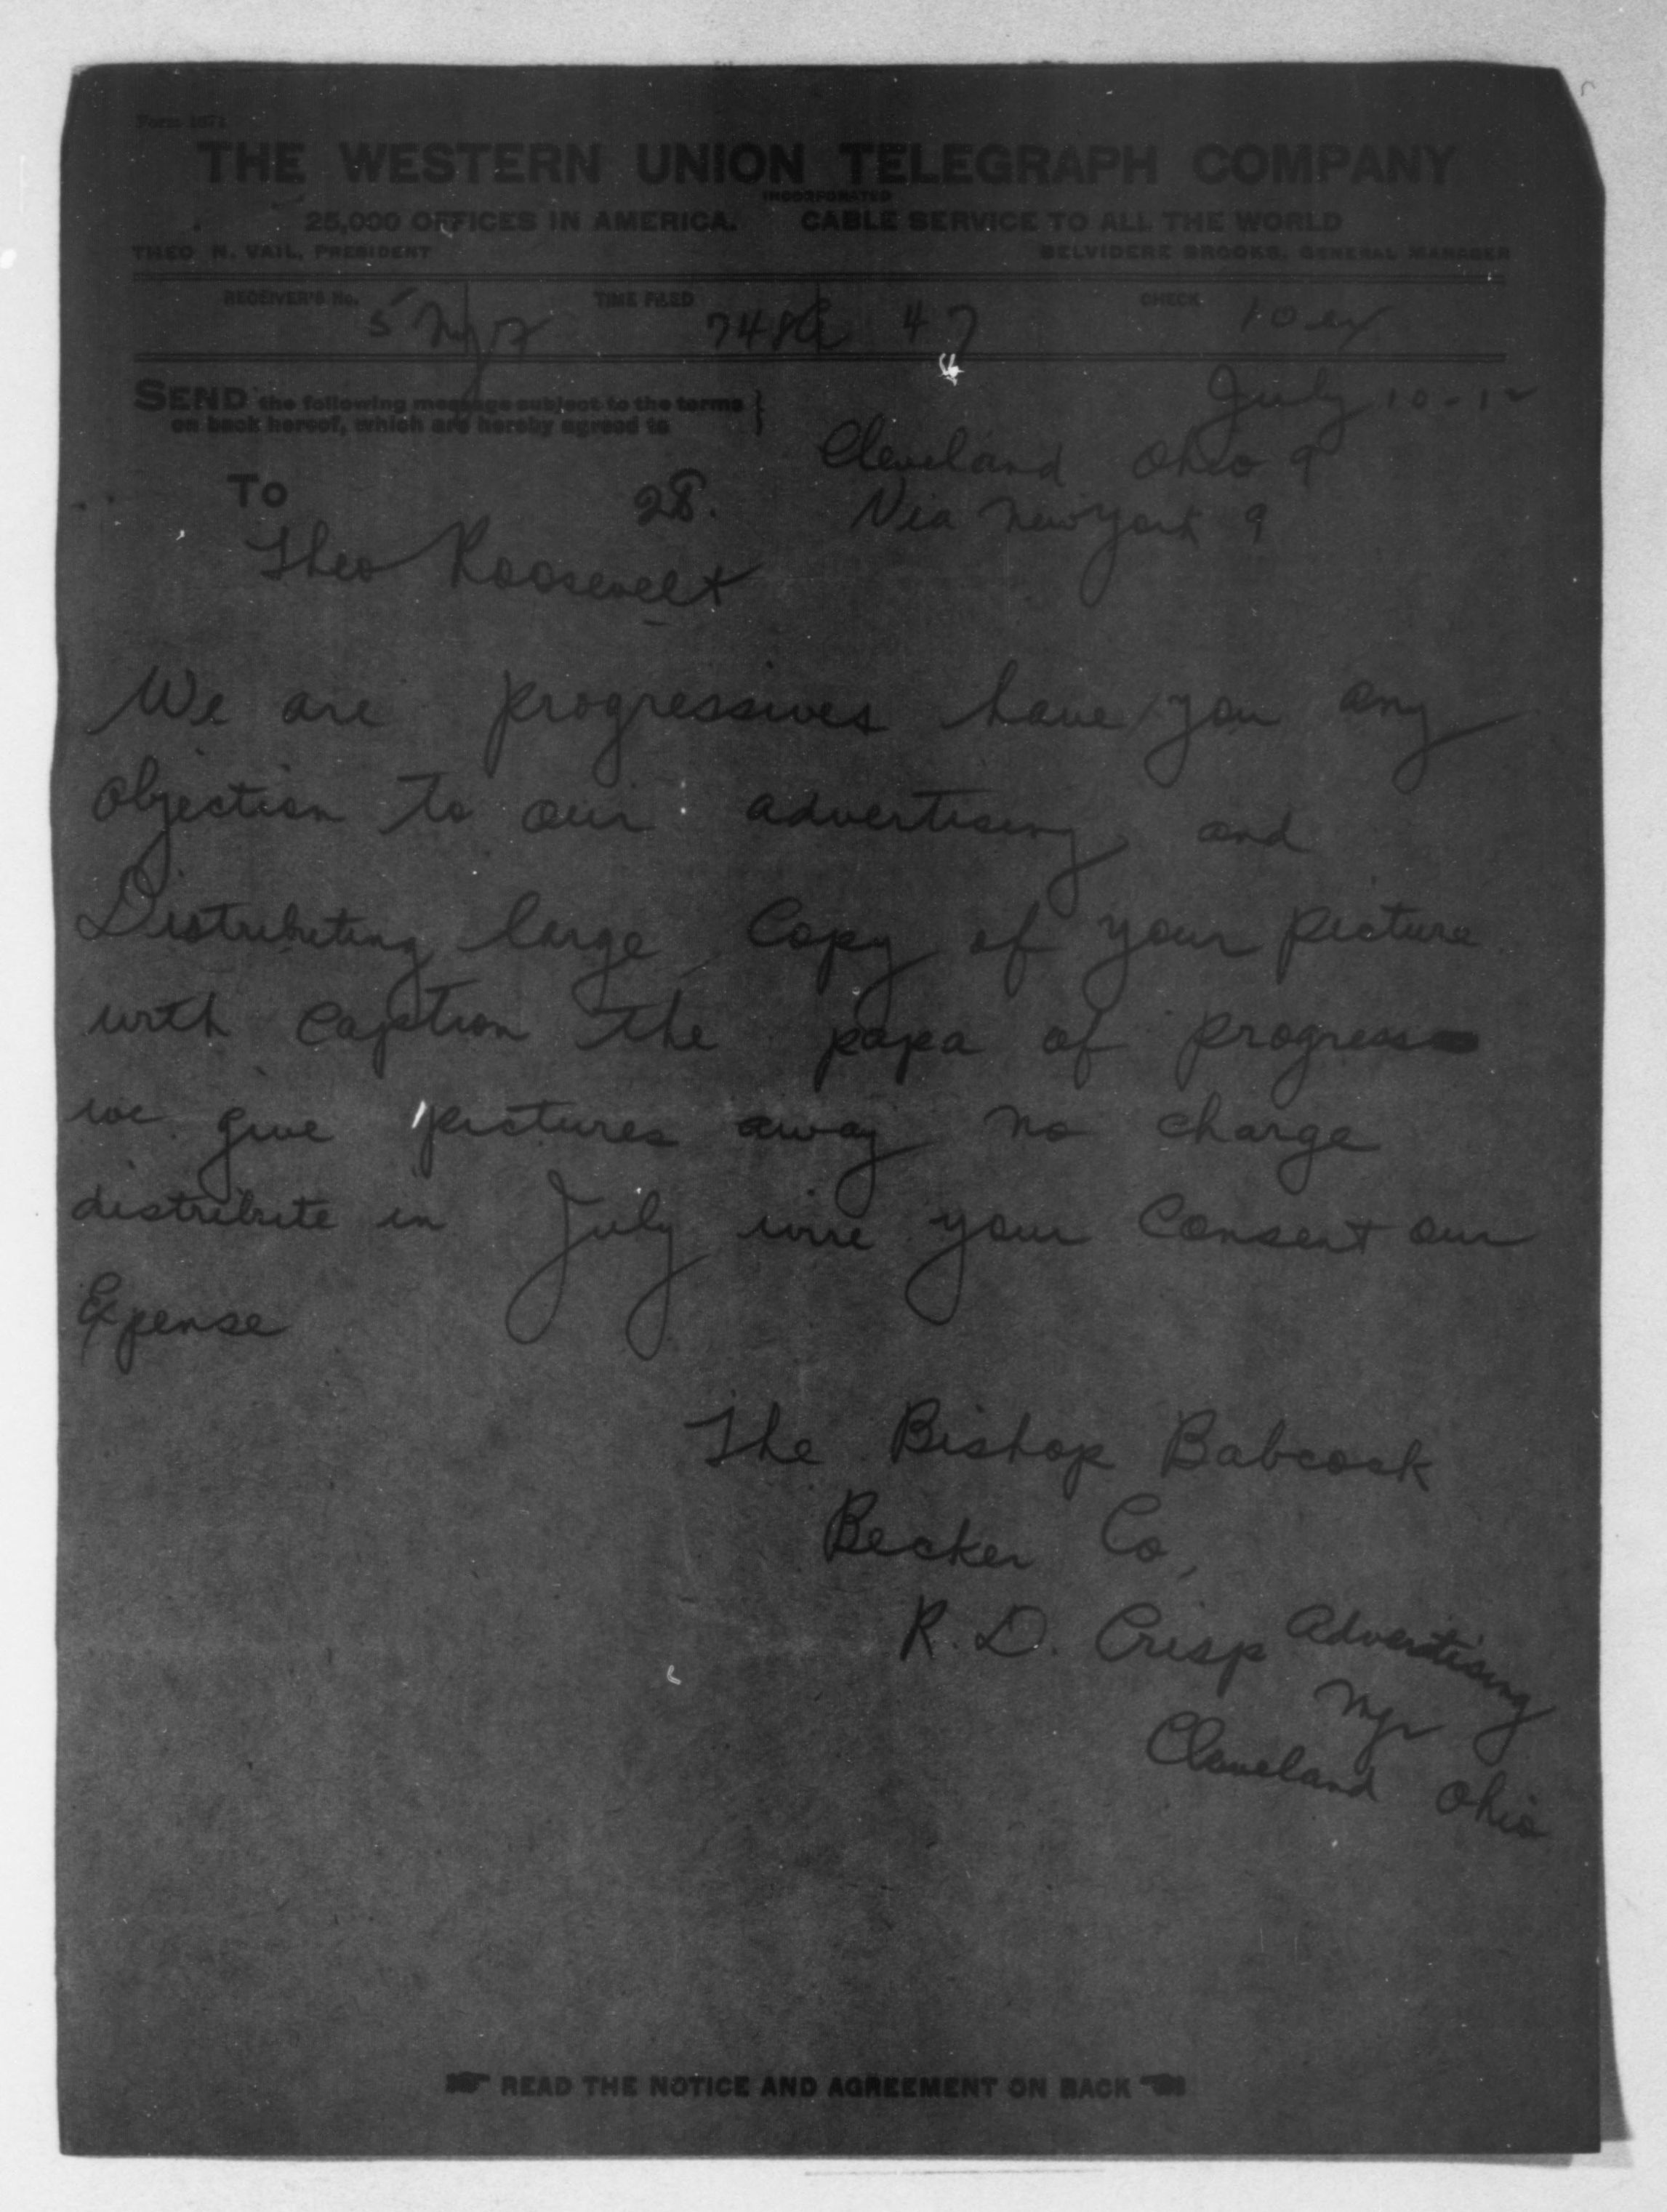 Form 1671
THE WESTERN UNION TELEGRAPH COMPANY
INCORPORATED
25,000 OFFICES IN AMERICA. CABLE SERVICE TO ALL THE WORLD
THEO. N. VAIL, PRESIDENT BELVIDERE BROOKS, GENERAL MANAGER
RECEIVER'S No. TIME FILED CHECK
5 47
SEND the following message subject to the terms
on back hereof, which are hereby agreed to
July 10-12
Cleveland Ohio 9
To 28. Via New York 9
Theo Roosevelt
We are progressives have you any
objection to our advertising and
Distributing large Copy of your picture
with caption the papa of progress
we give pictures away no charge
distribute in July wire your Consent our
Expense
The Bishop Babcock
Becker Co,
R. D. Crisp Advertising
Mgr
Cleveland Ohio
READ THE NOTICE AND AGREEMENT ON BACK